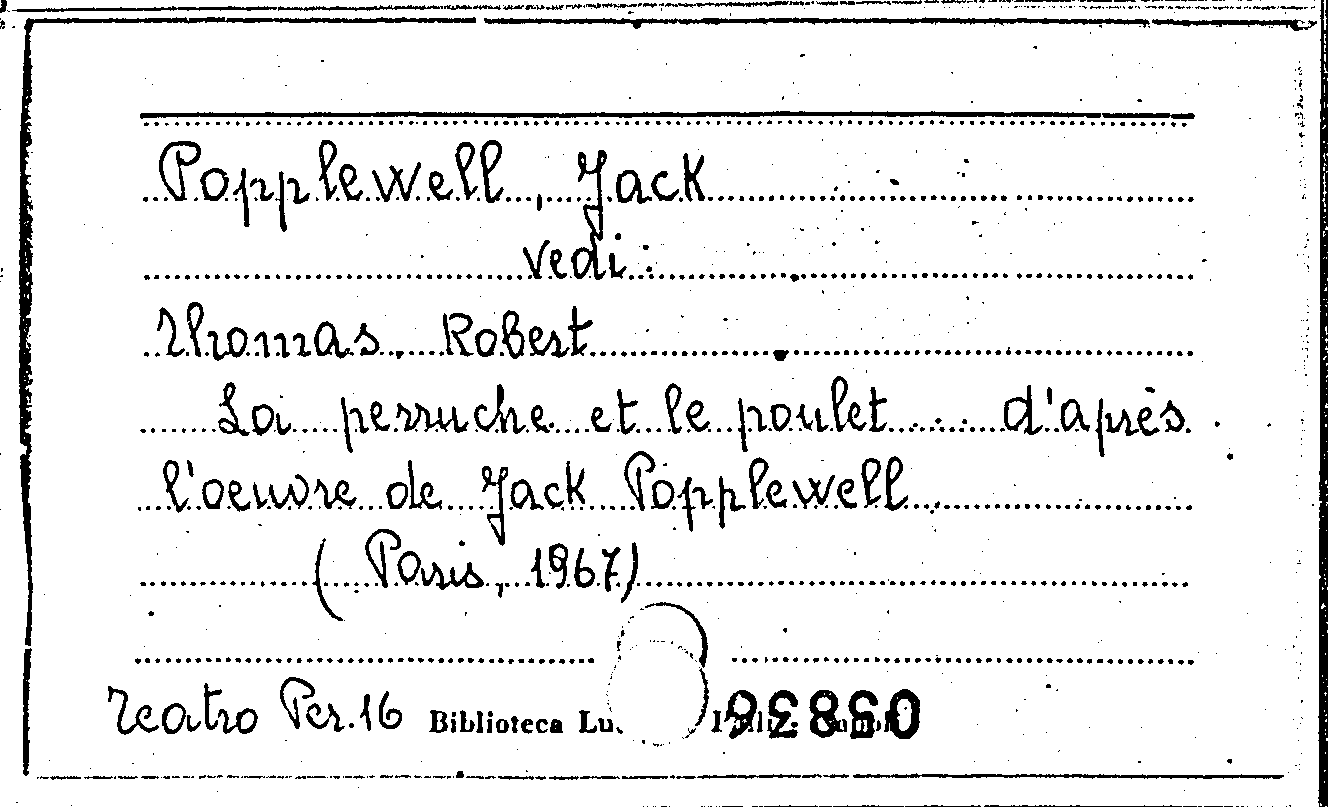 Popplewell, Jack
vedi:
Thomas, Robert
La perruche et le poulet... d'après
l'oeuvre de Jack Popplewell.
(Paris, 1967)
Teatro Per.16 Biblioteca